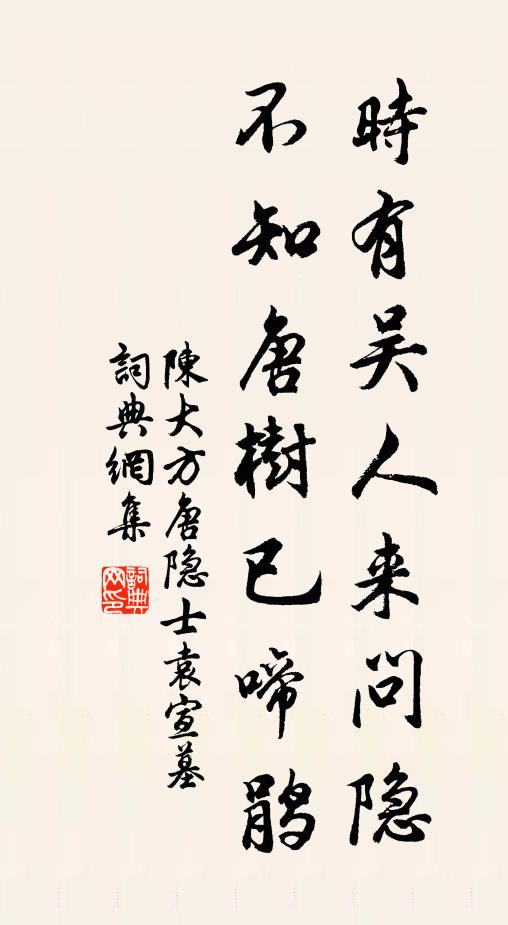 時有吴人来問隐
不知唐樹已啼鹃
陳大方唐隐士袁宣墓
詞典網集
詞典网印